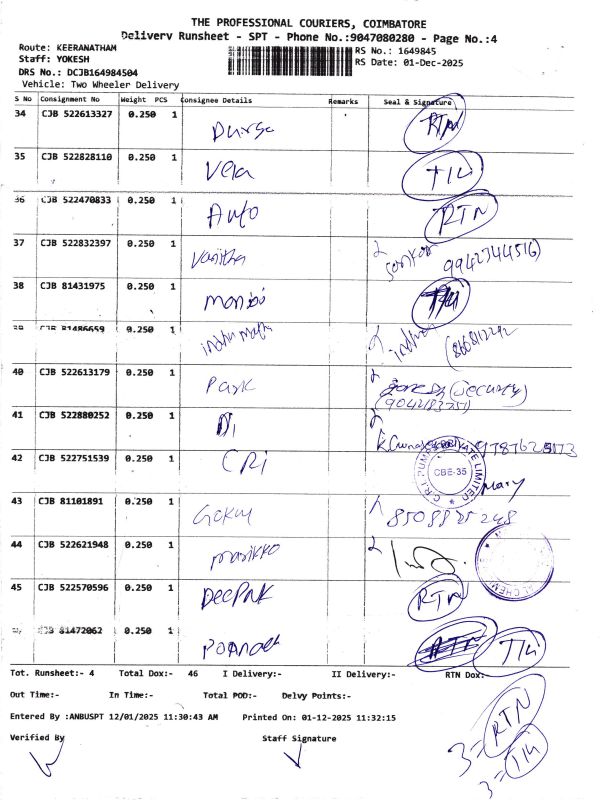 THE PROFESSIONAL COURIERS, COIMBATORE
Delivery Runsheet - SPT - Phone No.:9047080280 - Page No.:4
Route: KEERANATHAM
RS No.: 1649845
Staff: YOKESH
RS Date: 01-Dec-2025
DRS No.: DCJB164984504
Vehicle: Two Wheeler Delivery
S No Consignment No Weight PCS Consignee Details Remarks Seal & Signature
34 CJB 522613327 0.250 1 Durga RTN
35 CJB 522828110 0.250 1 Vela
36 CJB 522470833 0.250 1 Auto RTN
37 CJB 522832397 0.250 1 Vanitha 9942344516
38 CJB 81431975 0.250 1
39 CJB 81486659 0.250 1
40 CJB 522613179 0.250 1 Park (Security)
41 CJB 522880252 0.250 1
42 CJB 522751539 0.250 1 CRI
C.R.I. PUMPS PRIVATE LIMITED
CBE-35
Mary
43 CJB 81101891 0.250 1 8508825248
44 CJB 522621948 0.250 1
45 CJB 522570596 0.250 1 DeePAK RTN
CJB 81472062 0.250 1 RTN
Tot. Runsheet:- 4 Total Dox:- 46 I Delivery:- II Delivery:- RTN Dox:-
Out Time:- In Time:- Total POD:- Delvy Points:-
Entered By :ANBUSPT 12/01/2025 11:30:43 AM Printed On: 01-12-2025 11:32:15
Verified By Staff Signature
3 = RTN